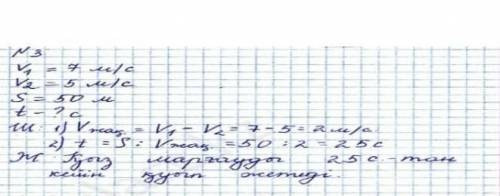 №3
V₁ = 7 м/с
V₂ = 5 м/с
S = 50 м
t - ? с
Ш: 1) Vжақ. = V₁ - V₂ = 7-5 = 2 м/с
2) t = S : Vжақ. = 50 : 2 = 25 с
Ж: Қыз марғауды 25 с. - тан
кейін қуып жетеді.